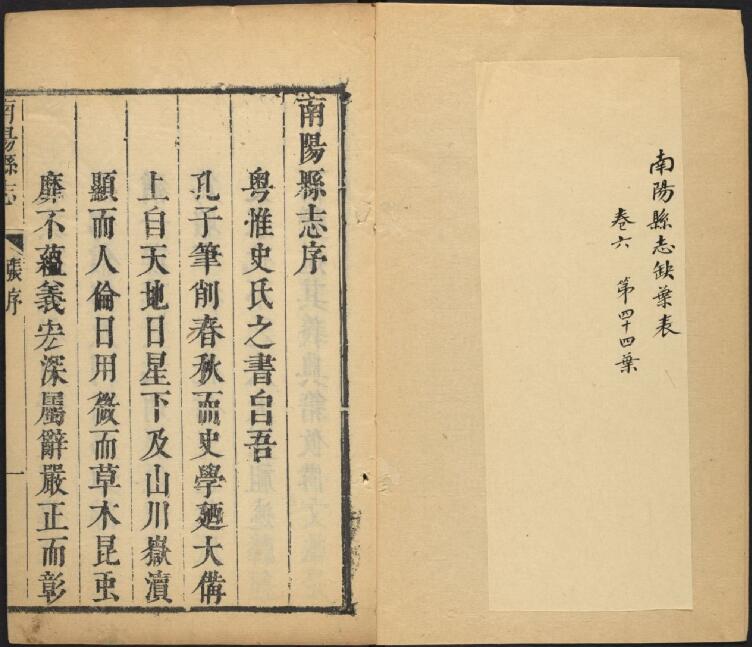 南陽縣志缺葉表
卷六 第四十四葉
南陽縣志序
粵惟史氏之書自吾
孔子筆削春秋而史學廼大備
上自天地日星下及山川嶽瀆
顯而人倫日用微而草木昆虫
靡不蘊義宏深屬辭嚴正而彰
南陽縣志
張序
一